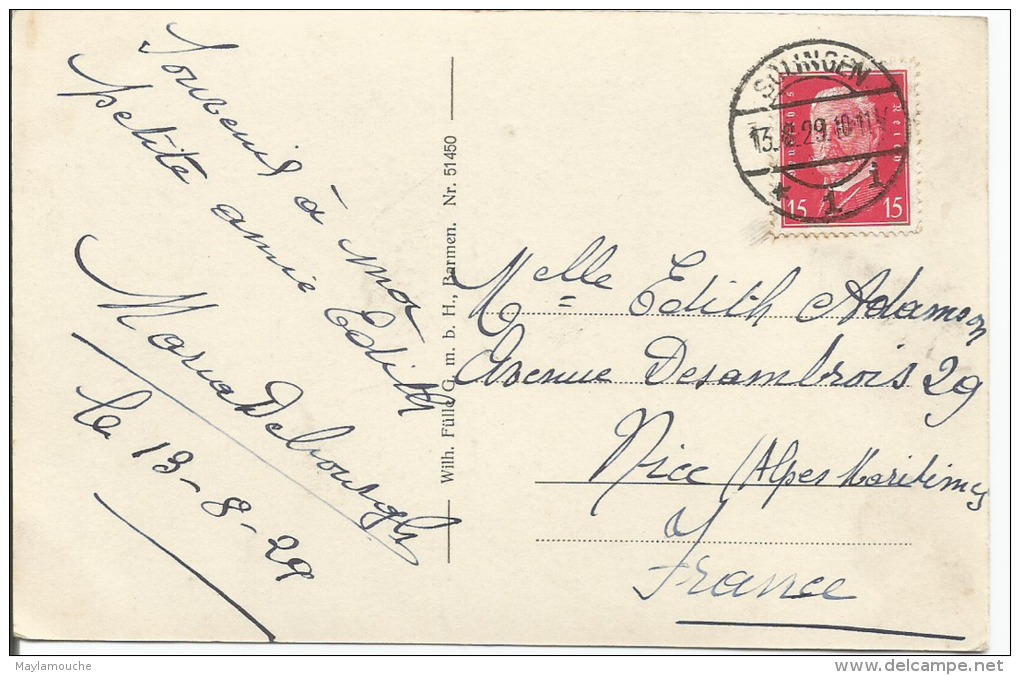 Souvenir à ma
petite amie Edith
Maria Debourgh
le 13-8-29
Wilh. Fülle G. m. b. H., Barmen. Nr. 51450
SOLINGEN
13.8.29.10-11V
* 1 i
15 15
Melle Edith Adamson
Avenue Desambrois 29
Nice (Alpes Maritimes
France
Maylamouche
www.delcampe.net